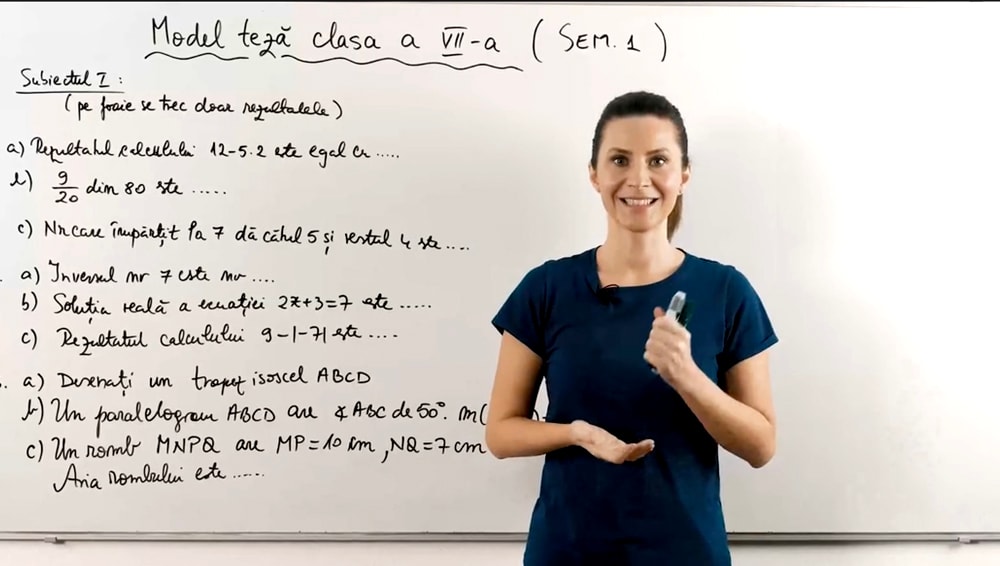 Model teză clasa a VII-a (SEM. 1)
Subiectul I:
(pe foaie se trec doar rezultatele)
a) Rezultatul calculului 12-5·2 este egal cu .....
b) 9/20 din 80 este .....
c) Nr care împărțit la 7 dă câtul 5 și restul 4 este ....
a) Inversul nr 7 este nr ....
b) Soluția reală a ecuației 2x+3=7 este .....
c) Rezultatul calculului 9-|-7| este ....
a) Desenați un trapez isoscel ABCD
b) Un paralelogram ABCD are ∢ABC de 50°. m(
c) Un romb MNPQ are MP=10 cm, NQ=7 cm
Aria rombului este ......